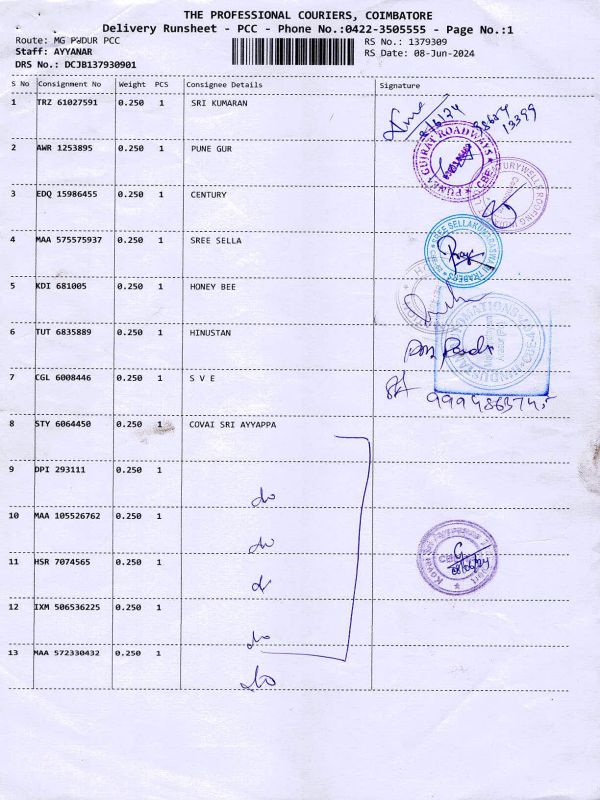 THE PROFESSIONAL COURIERS, COIMBATORE
Delivery Runsheet - PCC - Phone No.:0422-3505555 - Page No.:1
Route: MG PUDUR PCC RS No.: 1379309
Staff: AYYANAR RS Date: 08-Jun-2024
DRS No.: DCJB137930901
S No Consignment No Weight PCS Consignee Details Signature
1 TRZ 61027591 0.250 1 SRI KUMARAN
8/6/24
2 AWR 1253895 0.250 1 PUNE GUR
PUNA GUJRAT ROADWAYS CBE
3 EDQ 15986455 0.250 1 CENTURY
4 MAA 575575937 0.250 1 SREE SELLA
5 KDI 681005 0.250 1 HONEY BEE
6 TUT 6835889 0.250 1 HINUSTAN
7 CGL 6008446 0.250 1 S V E
8 STY 6064450 0.250 1 COVAI SRI AYYAPPA
9 DPI 293111 0.250 1
do
10 MAA 105526762 0.250 1
do
11 HSR 7074565 0.250 1
do
08/06/24
12 IXM 506536225 0.250 1
do
13 MAA 572330432 0.250 1
do